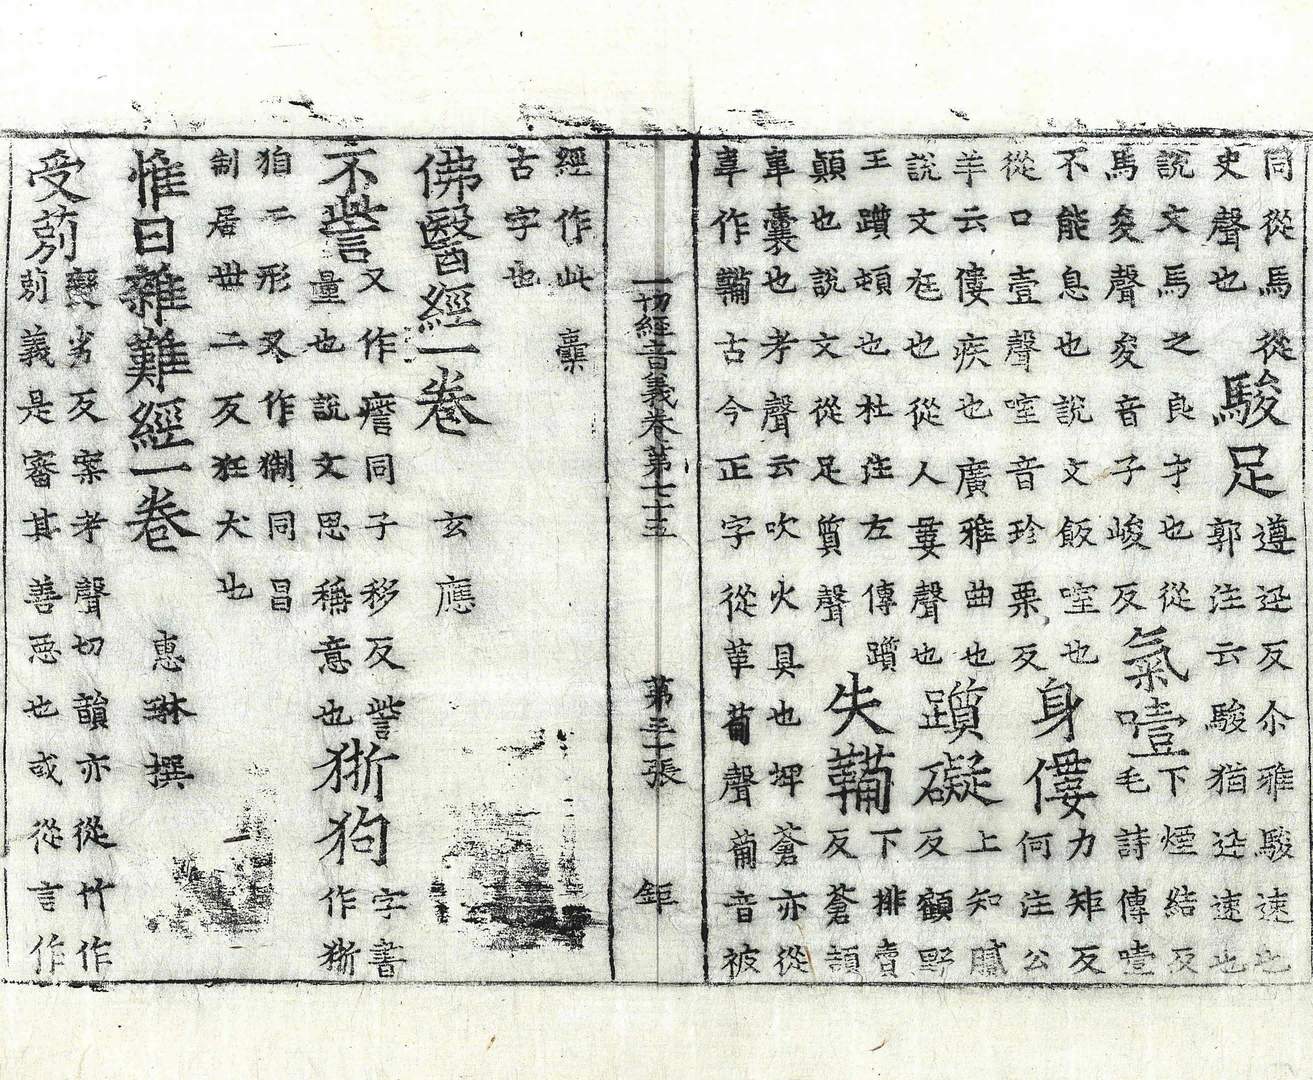 同從馬從
史聲也
駿足
遵迅反尒雅駿速也
郭注云駿猶迅速也
說文馬之良才也從
馬夋聲夋音子峻反
氣噎
下煙結反
毛詩傳噎
不能息也說文飯窒也
從口壹聲窒音珍栗反
身僂
力矩反
何注公
羊云僂疾也廣雅曲也
說文尪也從人婁聲也
躓礙
上知膩
反顧野
王躓頓也杜注左傳躓
顛也說文從足質聲
失鞴
下排賣
反蒼頡
韋囊也考聲云吹火具也埤蒼亦從
韋作鞴古今正字從革𤰇聲𤰇音被
一切經音義卷第七十五 第三十張 鉅
經作此橐
古字也
佛醫經一卷 玄應
不訾
又作 同子移反訾
量也說文思稱意也
狾狗
字書
作狾
二形又作猘同昌
制居世二反狂犬也
惟曰雜難經一卷 惠琳撰
受莂
變劣反案考聲切韻亦從竹作
莂義是審其善惡也或從言作